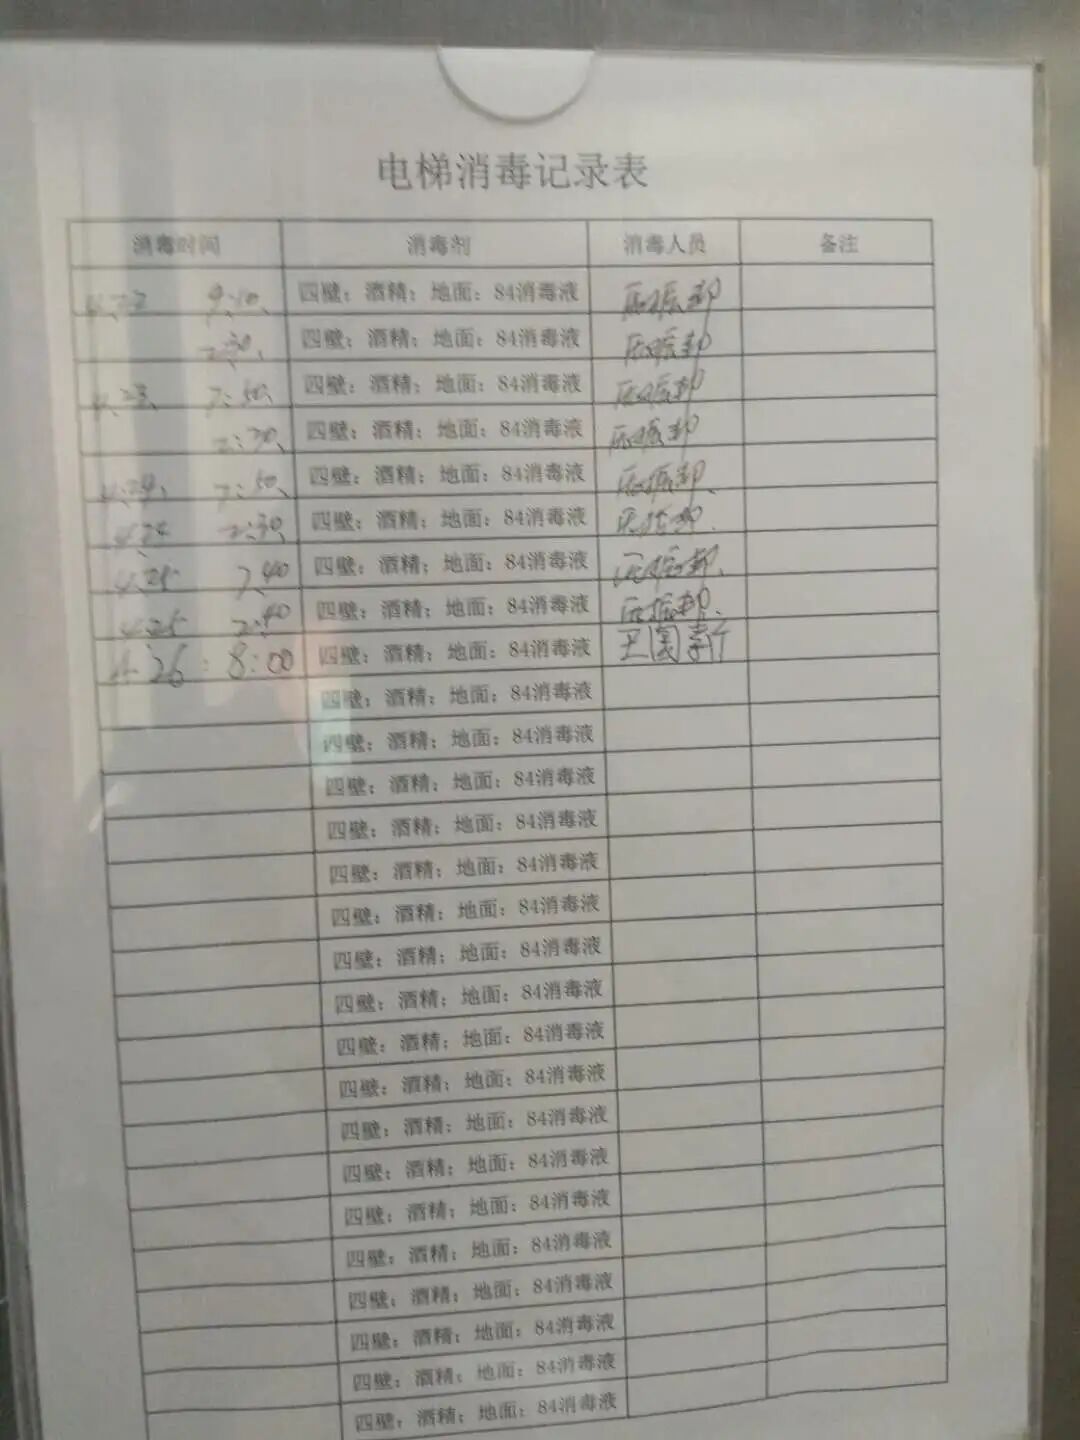 电梯消毒记录表
消毒时间 消毒剂 消毒人员 备注
4.22 9:10 四壁：酒精；地面：84消毒液
2:30 四壁：酒精；地面：84消毒液
4.23 7:50 四壁：酒精；地面：84消毒液
2:30 四壁：酒精；地面：84消毒液
4.24 7:50 四壁：酒精；地面：84消毒液
4.24 2:30 四壁：酒精；地面：84消毒液
4.25 7.40 四壁：酒精；地面：84消毒液
4.25 2:40 四壁：酒精；地面：84消毒液
4.26 8:00 四壁：酒精；地面：84消毒液
四壁：酒精；地面：84消毒液
四壁：酒精；地面：84消毒液
四壁：酒精；地面：84消毒液
四壁：酒精；地面：84消毒液
四壁：酒精；地面：84消毒液
四壁：酒精；地面：84消毒液
四壁：酒精；地面：84消毒液
四壁：酒精；地面：84消毒液
四壁：酒精；地面：84消毒液
四壁：酒精；地面：84消毒液
四壁：酒精；地面：84消毒液
四壁：酒精；地面：84消毒液
四壁：酒精；地面：84消毒液
四壁：酒精；地面：84消毒液
四壁：酒精；地面：84消毒液
四壁：酒精；地面：84消毒液
四壁：酒精；地面：84消毒液
四壁：酒精；地面：84消毒液